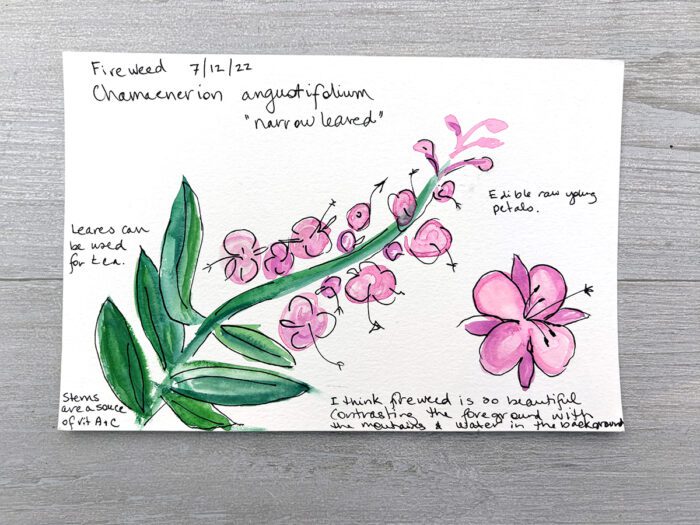 Fireweed 7/12/22
Chamaenerion angustifolium
"narrow leaved"
Edible raw young
petals.
Leaves can
be used
for tea.
Stems
are a souce
of vit A+C
I think fireweed is so beautiful
contrasting the foreground with
the mountains & water in the background